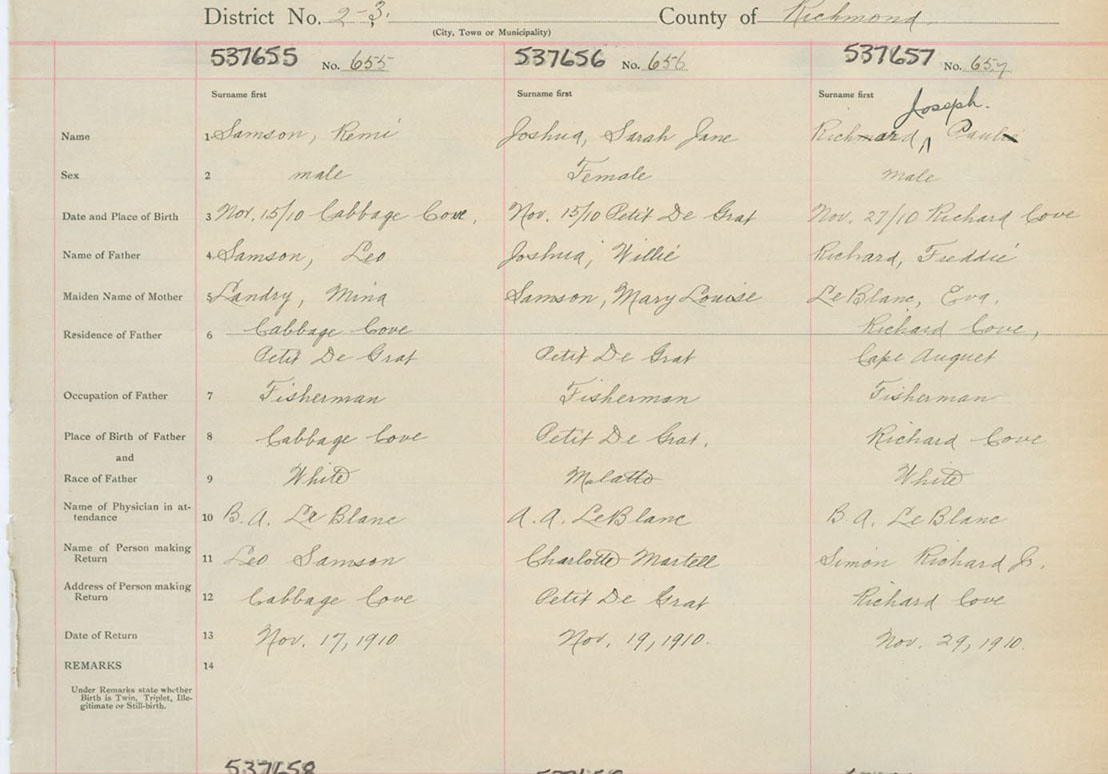 District No. 2-3. County of Richmond
(City, Town or Municipality)
537655 No. 655 537656 No. 656 537657 No. 657
Surname first Surname first Surname first
Joseph.
Name 1 Samson, Remi Joshua, Sarah Jane Richard, Paul
Sex 2 male Female male
Date and Place of Birth 3 Nov. 15/10 Cabbage Cove. Nov. 15/10 Petit De Grat Nov. 27/10 Richard Cove
Name of Father 4 Samson, Leo Joshua, Willie Richard, Freddie
Maiden Name of Mother 5 Landry, Mina Samson, Mary Louise LeBlanc, Eva.
Residence of Father 6 Cabbage Cove Richard Cove,
Petit De Grat Petit De Grat Cape Auguet
Occupation of Father 7 Fisherman Fisherman Fisherman
Place of Birth of Father 8 Cabbage Cove Petit De Grat. Richard Cove
and
Race of Father 9 White Malatto White
Name of Physician in at-
tendance 10 B. A. Le Blanc A. A. LeBlanc B. A. LeBlanc
Name of Person making
Return 11 Leo Samson Charlotte Martell Simon Richard Jr.
Address of Person making
Return 12 Cabbage Cove Petit De Grat Richard Cove
Date of Return 13 Nov. 17, 1910 Nov. 19, 1910. Nov. 29, 1910.
REMARKS 14
Under Remarks state whether
Birth is Twin, Triplet, Ille-
gitimate or Still-birth.
537658